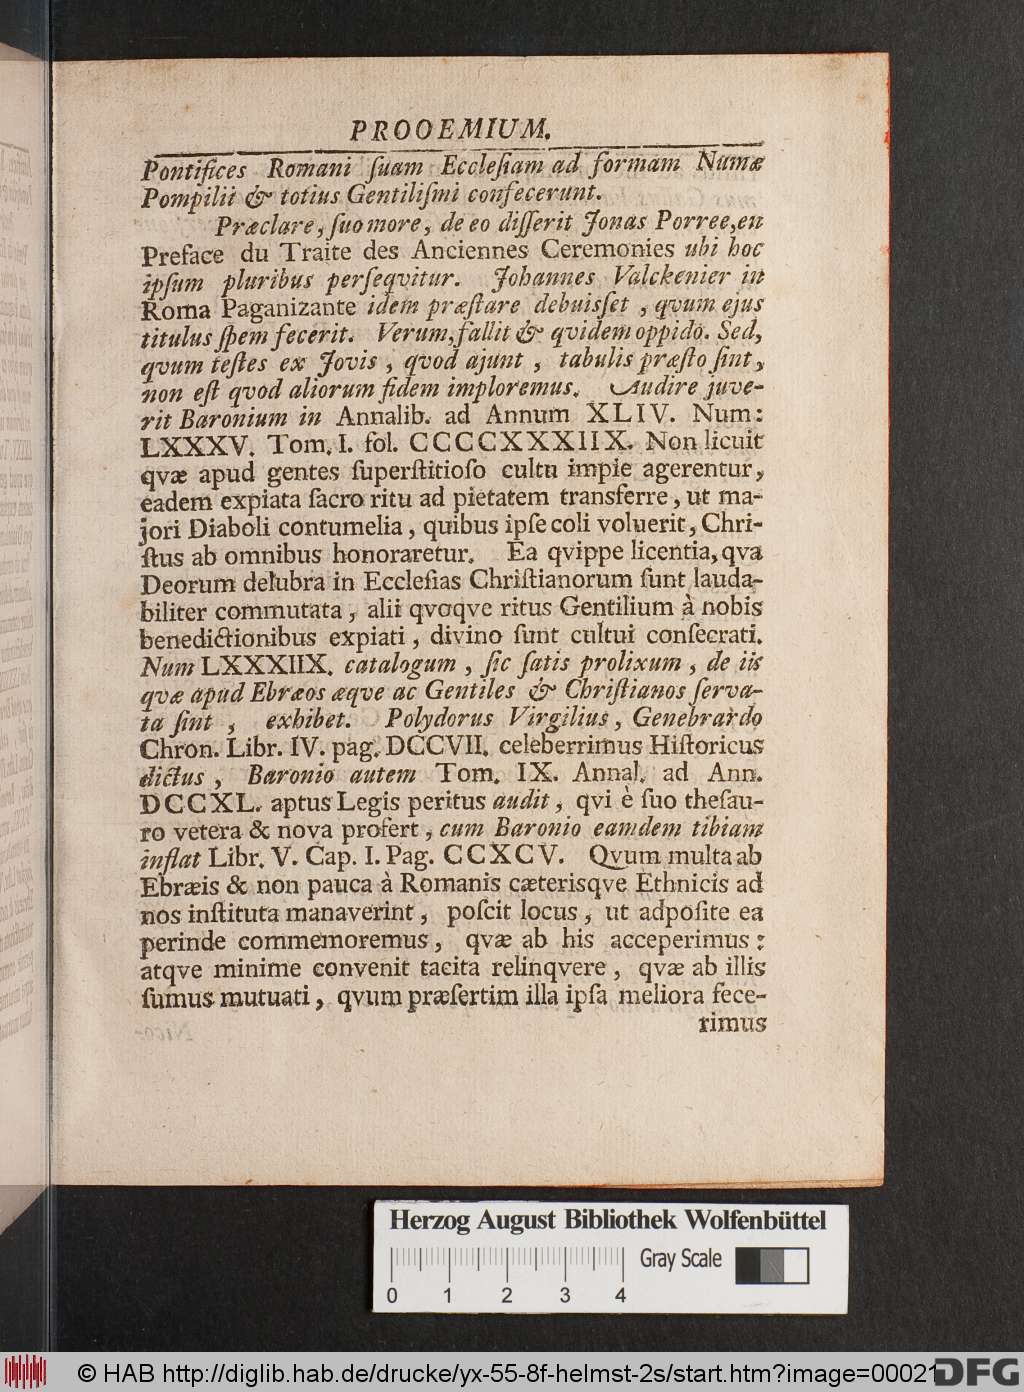 PROOEMIUM.
Pontifices Romani ſuam Eccleſiam ad formam Numæ
Pompilii & totius Gentiliſmi confecerunt.
Præclare, ſuo more, de eo diſſerit Jonas Porree, en
Preface du Traite des Anciennes Ceremonies ubi hoc
ipſum pluribus perſeqvitur. Johannes Valckenier in
Roma Paganizante idem præſtare debuisſet, qvum ejus
titulus ſpem fecerit. Verum, fallit & qvidem oppidò. Sed,
qvum teſtes ex Jovis, qvod ajunt, tabulis præſto ſint,
non eſt qvod aliorum fidem imploremus. Audire juve-
rit Baronium in Annalib. ad Annum XLIV. Num:
LXXXV. Tom. I. fol. CCCCXXXIIX. Non licuit
qvæ apud gentes ſuperſtitioſo cultu impie agerentur,
eadem expiata ſacro ritu ad pietatem transferre, ut ma-
jori Diaboli contumelia, quibus ipſe coli voluerit, Chri-
ſtus ab omnibus honoraretur. Ea qvippe licentia, qva
Deorum delubra in Eccleſias Chriſtianorum ſunt lauda-
biliter commutata, alii qvoqve ritus Gentilium à nobis
benedictionibus expiati, divino ſunt cultui conſecrati.
Num LXXXIIX. catalogum, ſic ſatis prolixum, de iis
qvæ apud Ebræos æqve ac Gentiles & Chriſtianos ſerva-
ta ſint, exhibet. Polydorus Virgilius, Genebrardo
Chron. Libr. IV. pag. DCCVII. celeberrimus Hiſtoricus
dictus, Baronio autem Tom. IX. Annal. ad Ann.
DCCXL. aptus Legis peritus audit, qvi è ſuo theſau-
ro vetera & nova profert, cum Baronio eamdem tibiam
inflat Libr. V. Cap. I. Pag. CCXCV. Qvum multa ab
Ebræis & non pauca à Romanis cæterisqve Ethnicis ad
nos inſtituta manaverint, poſcit locus, ut adpoſite ea
perinde commemoremus, qvæ ab his acceperimus:
atqve minime convenit tacita relinqvere, qvæ ab illis
ſumus mutuati, qvum præſertim illa ipſa meliora fece-
rimus
Herzog August Bibliothek Wolfenbüttel
Gray Scale
0 1 2 3 4
© HAB http://diglib.hab.de/drucke/yx-55-8f-helmst-2s/start.htm?image=00021
DFG